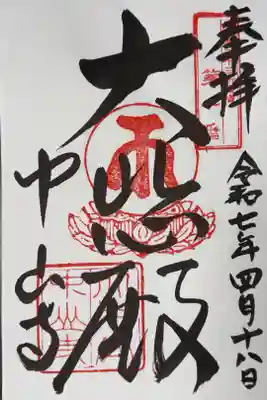 奉拝
令和七年四月十八日
大悲殿
中山寺